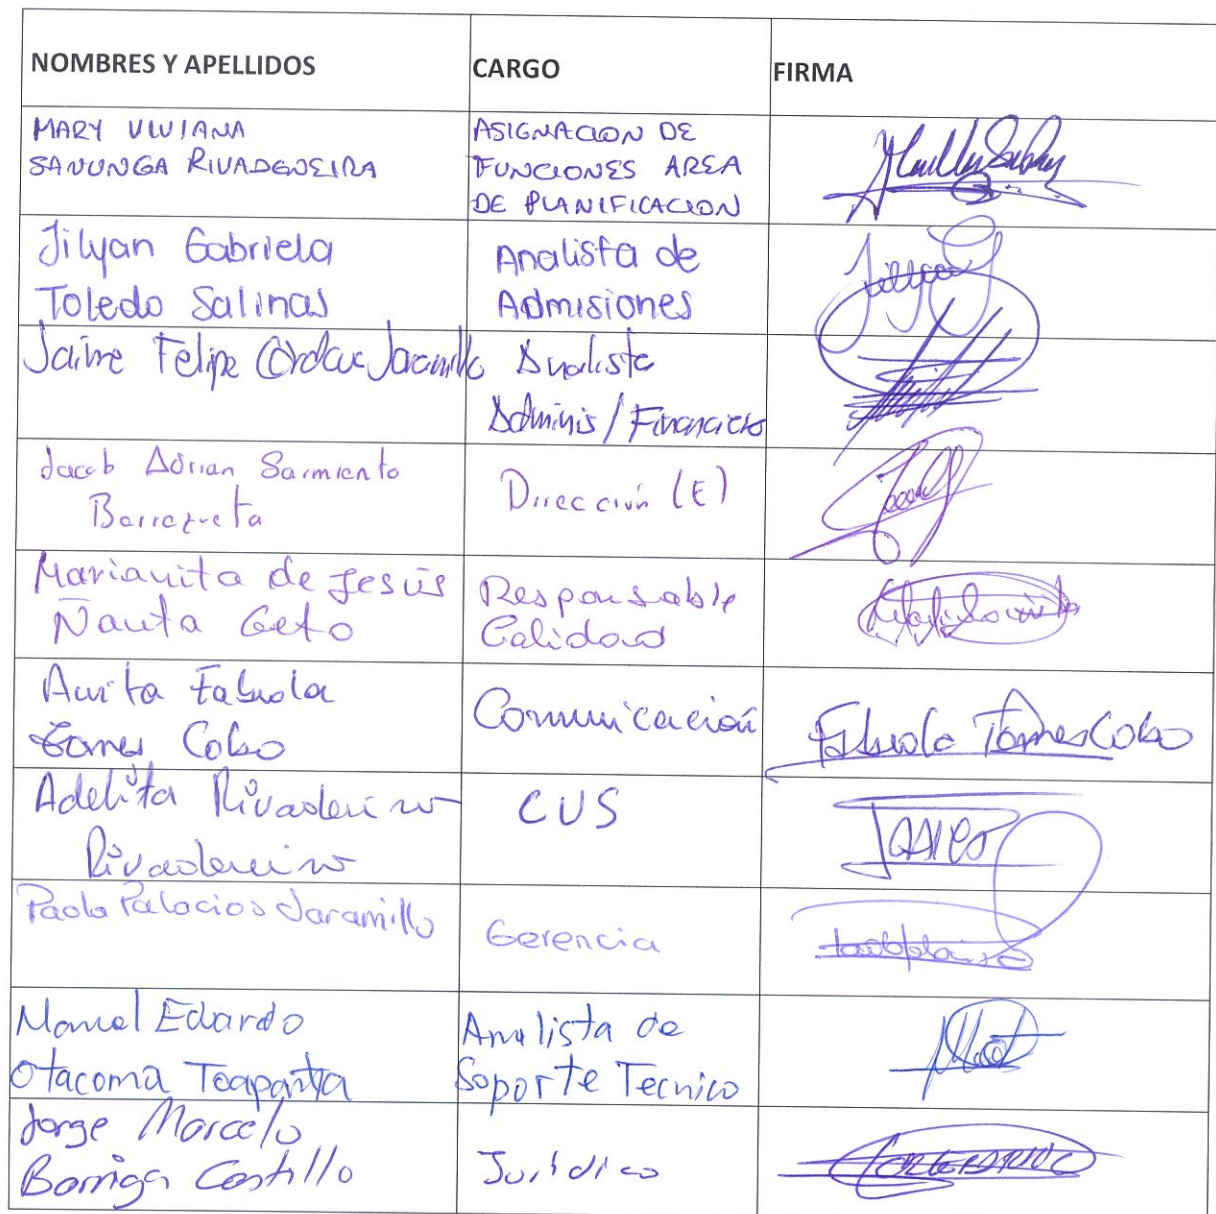 NOMBRES Y APELLIDOS CARGO FIRMA
MARY VIVIANA
SANUNGA RIVADENEIRA
ASIGNACION DE
FUNCIONES AREA
DE PLANIFICACION
Jilyan Gabriela
Toledo Salinas
Analista de
Admisiones
Jaime Felipe Jaramillo
Analista
Adminis/Financiero
Jacob Adrian Sarmiento
Barrezueta
Dirección (E)
Marianita de Jesús
Ñauta
Responsable
Calidad
Anita Fabiola
Cobo
Comunicación
Fabiola Torres Cobo
Adelita Rivadeneira
Rivadeneira
CUS
Paola Palacios Jaramillo
Gerencia
Manuel Eduardo
Otacoma Toapanta
Analista de
Soporte Tecnico
Jorge Marcelo
Barriga Castillo
Jurídico